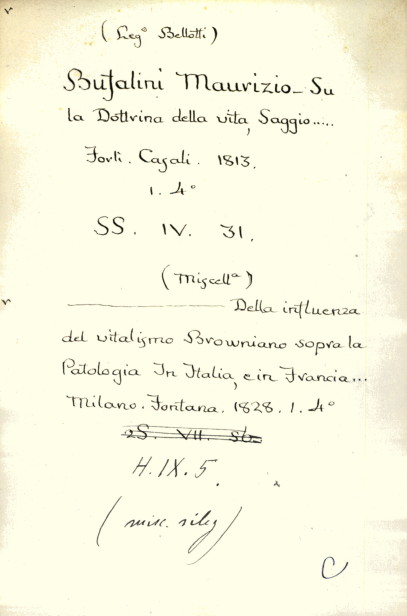 (Leg° Bellotti)
Bufalini Maurizio - Su
la Dottrina della vita, Saggio.....
Forlì. Casali. 1813.
1. 4°
SS. IV. 31.
(Miscellª)
Della influenza
del vitalismo Browniano sopra la
Patologia In Italia, e in Francia...
Milano. Fontana. 1828. 1. 4°
H. IX. 5.
(misc. rileg)
C